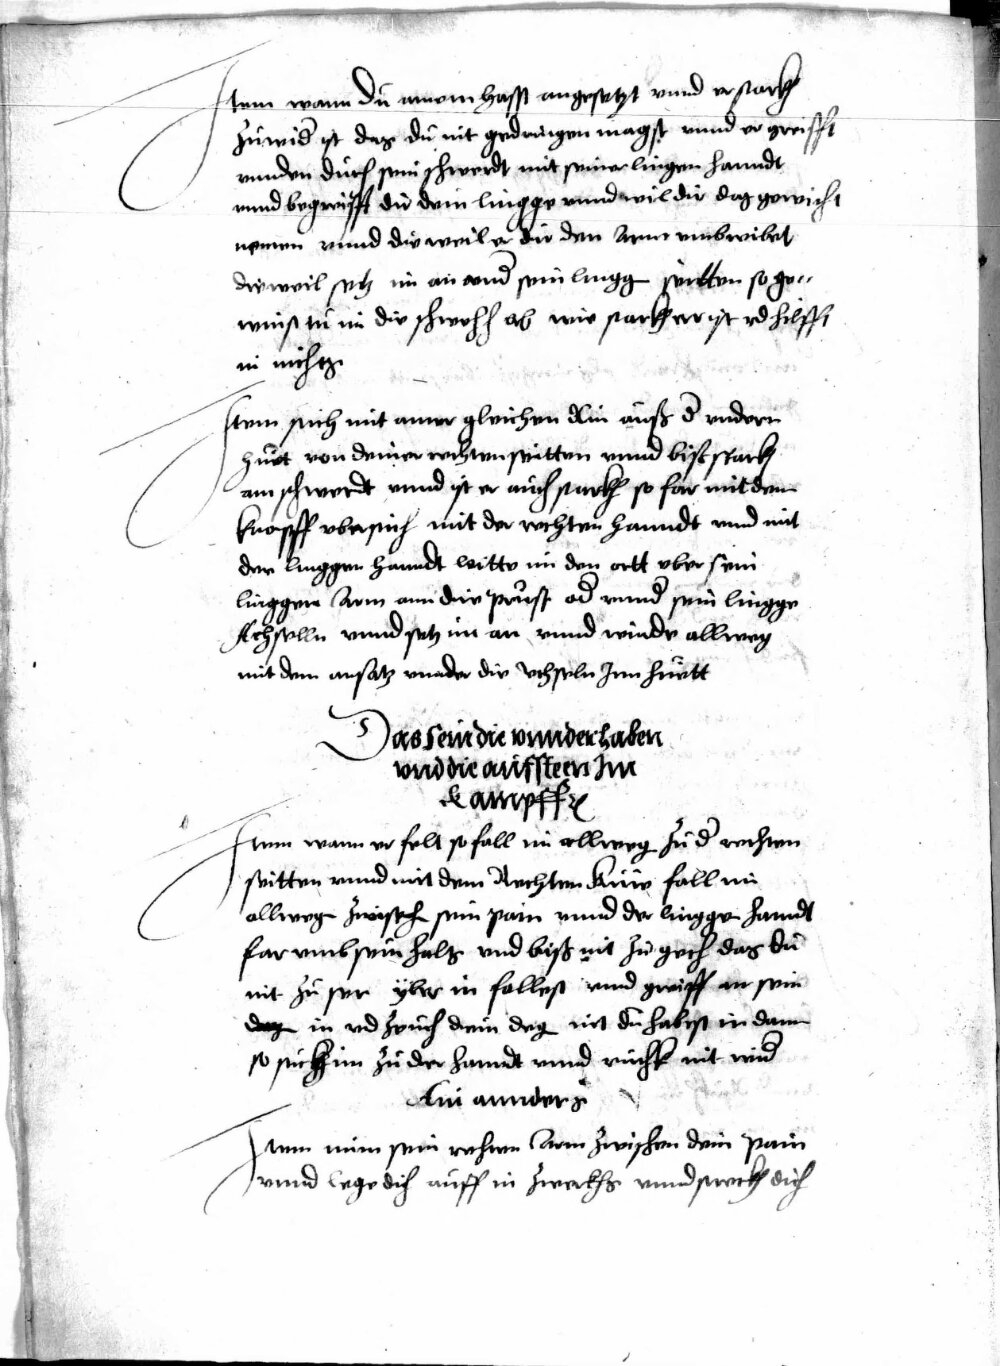 Item wann du ainem hasst angesetzt vnnd er starck
zuwid ist das du nit gedringen magst vnnd er greifft
vnnden durch sein schwerdt mit seiner lingen hanndt
vnnd begreifft dir dein lingge vnnd wil dir das gewicht
nemen vnnd die weil er dir den Arm
die weil setz im an vnnd sein lingg seitten so ge-
winst tu im die schwech ab wie starck er ist vd hilfft
in nichtz
Item stich mit ainer gleichen ein auß d vndern
huet von deiner rechten seitten vnnd bist starck
am schwerdt vnnd ist er auch starck so far mit dem
knopff vbersich mit der rechten hanndt vnnd mit
der linggen hanndt im den ortt vber sein
linggen Arm ann die prust od vnnd sein lingge
Achselln vnnd setz im an vnnd winde allweg
mit dem ansatz vnnder die vchseln Inn huett
Das sein die vnnderhaben
vnd die auffsteen Im
kampff
Item wann er felt so fall im allweg zu d rechten
seitten vnnd mit dem Rechten knüe fall im
allweg zwisch sein pain vnnd der lingge hanndt
far vmb sein halß vnd biß nit zu gech das du
nit zu ser yber in fallest vnnd greiff an sein
in vd zeuch dein deg nit du habest in dann
so stich im zu der hanndt vnnd ruckh nit wid
Ain annders
Item nim sein rechten Arm zwischen dein pain
vnnd lege dich auff in zwerchs vnnd streckh dich